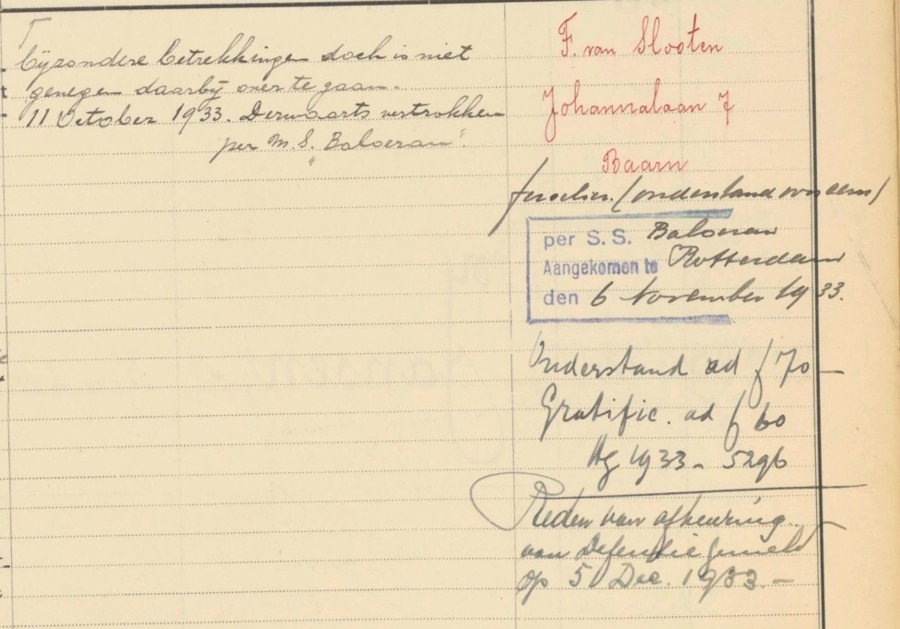 bijzondere betrekkingen doch is niet
genegen daarbij over te gaan.
11 October 1933. Derwaarts vertrokken
per M.S. "Baloeran".
F. van Slooten
Johannalaan 7
Baarn
fuselier. (onderstand
per S.S. Baloeran
Aangekomen te Rotterdam
den 6 November 1933.
Onderstand ad f 70 —
Gratific. ad f 60
Ag 1933 - 5296
Reden van afkeuring
aan Defensie gemeld
op 5 Dec. 1933. —